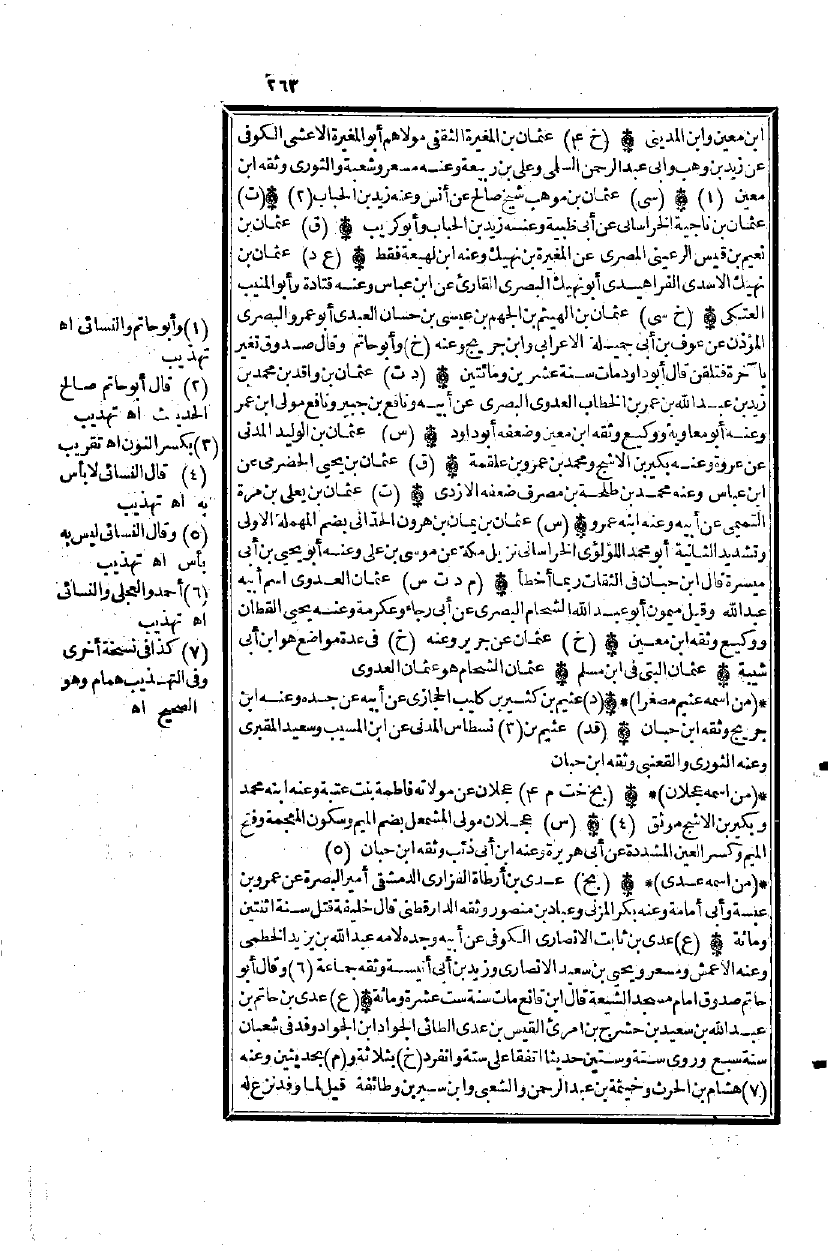 ٢٦٣
ابن معين وابن المديني (خ ٤) عثمان بن المغيرة الثقفي مولاهم أبو المغيرة الاعشى الكوفى
عن زيد بن وهب وأبى عبد الرحمن السلمى وعلى بن ربيعة وعنه مسعر وشعبة والثورى وثقه ابن
معين (١) (سى) عثمان بن موهب شيخ صالح عن أنس وعنه زيد بن الحباب (٢) (ت)
عثمان بن ناجية الخراسانى عن أبى طيبة وعنه زيد بن الحباب وأبو كريب (ق) عثمان بن
نعيم بن قيس الرعينى المصرى عن المغيرة بن نهيك وعنه ابن لهيعة فقط (ع د) عثمان بن
نهيك الاسدى الفراهيدى أبو نهيك البصرى القارئ عن ابن عباس وعنه قتادة وأبو المنيب
العتكى (خ سى) عثمان بن الهيثم بن الجهم بن عيسى بن حسان العبدى أبو عمرو البصرى
المؤذن عن عوف بن أبى جميلة الاعرابى وابن جريج وعنه (خ) وأبو حاتم وقال صدوق تغير
بآخرة فتلقن قال أبو داود مات سنة عشرين ومائتين (د ت) عثمان بن واقد بن محمد بن
زيد بن عبد الله بن عمر بن الخطاب العدوى البصرى عن أبيه ونافع بن جبير ونافع مولى ابن عمر
وعنه أبو معاوية ووكيع وثقه ابن معين وضعفه أبو داود (س) عثمان بن الوليد المدنى
عن عروة وعنه بكير بن الاشج ومحمد بن عمرو بن علقمة (ق) عثمان بن يحيى الحضرمى عن
ابن عباس وعنه محمد بن طلحة بن مصرف ضعفه الازدى (ت) عثمان بن يعلى بن مرة
التميمى عن أبيه وعنه ابنه عمرو (س) عثمان بن يمان بن هرون الحدانى بضم المهملة الاولى
وتشديد الثانية أبو محمد اللؤلؤى الخراسانى نزيل مكة عن موسى بن على وعنه أبو يحيى بن أبى
ميسرة قال ابن حبان فى الثقات ربما أخطأ (م د ت س) عثمان العدوى اسم أبيه
عبد الله وقيل ميمون أبو عبد الله الشحام البصرى عن أبى رجاء وعكرمة وعنه يحيى القطان
ووكيع وثقه ابن معين (خ) عثمان عن جرير وعنه (خ) فى عدة مواضع هو ابن أبى
شيبة عثمان البتى فى ابن مسلم عثمان الشحام هو عثمان العدوى
*(من اسمه عثيم مصغرا)* (د) عثيم بن كثير بن كليب الحجازى عن أبيه عن جده وعنه ابن
جريج وثقه ابن حبان (قد) عثيم بن (٣) نسطاس المدنى عن ابن المسيب وسعيد المقبرى
وعنه الثورى والقعنبى وثقه ابن حبان
*(من اسمه عجلان)* (بخ خت م ٤) عجلان عن مولاته فاطمة بنت عتبة وعنه ابنه محمد
وبكير بن الاشج موثق (٤) (س) عجلان مولى المشمعل بضم الميم وسكون المعجمة وفتح
الميم وكسر العين المشددة عن أبى هريرة وعنه ابن أبى ذئب وثقه ابن حبان (٥)
*(من اسمه عدى)* (بخ) عدى بن أرطاة الفزارى الدمشقى أمير البصرة عن عمرو بن
عبسة وأبى أمامة وعنه بكر المزنى وعباد بن منصور وثقه الدارقطنى قال خليفة قتل سنة اثنتين
ومائة (ع) عدى بن ثابت الانصارى الكوفى عن أبيه وجده لامه عبد الله بن يزيد الخطمى
وعنه الأعمش ومسعر ويحيى بن سعيد الانصارى وزيد بن أبى أنيسة وثقه جماعة (٦) وقال أبو
حاتم صدوق امام مسجد الشيعة قال ابن قانع مات سنة ست عشرة ومائة (ع) عدى بن حاتم بن
عبد الله بن سعيد بن حشرج بن امرئ القيس بن عدى الطائى الجواد ابن الجواد وفد فى شعبان
سنة سبع وروى ستة وستين حديثا اتفقا على ستة وانفرد (خ) بثلاثة و(م) بحديثين وعنه
(٧) هشام بن الحرث وخيثمة بن عبد الرحمن والشعبى وابن سيرين وطائفة قيل لما وفد نزع له
(١) وأبو حاتم والنسائى اه
تهذيب
(٢) قال أبو حاتم صالح
الحديث اه تهذيب
(٣) بكسر النون اه تقريب
(٤) قال النسائى لا بأس
به اه تهذيب
(٥) وقال النسائى ليس به
بأس اه تهذيب
(٦) أحمد والعجلى والنسائى
اه تهذيب
(٧) كذا فى نسخة أخرى
وفى التهذيب همام وهو
الصحيح اه